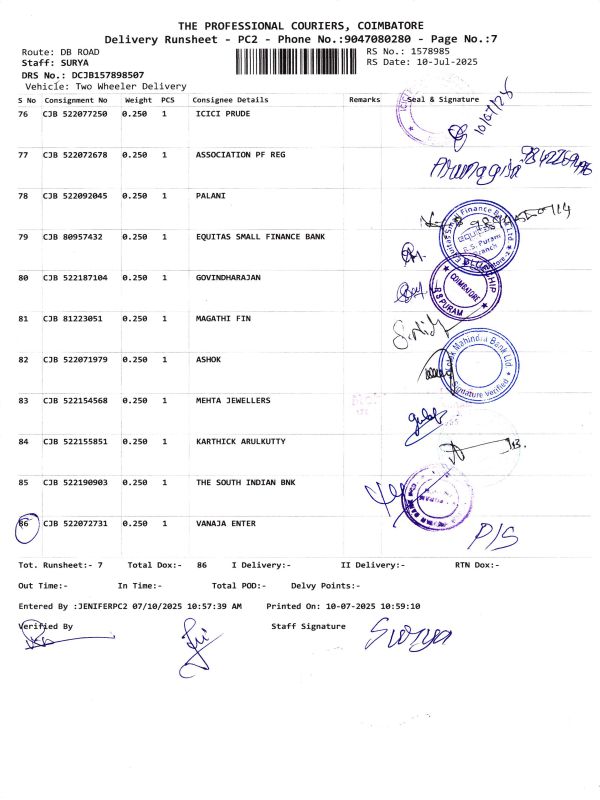 THE PROFESSIONAL COURIERS, COIMBATORE
Delivery Runsheet - PC2 - Phone No.:9047080280 - Page No.:7
Route: DB ROAD RS No.: 1578985
Staff: SURYA RS Date: 10-Jul-2025
DRS No.: DCJB157898507
Vehicle: Two Wheeler Delivery
S No Consignment No Weight PCS Consignee Details Remarks Seal & Signature
76 CJB 522077250 0.250 1 ICICI PRUDE
77 CJB 522072678 0.250 1 ASSOCIATION PF REG
78 CJB 522092045 0.250 1 PALANI
79 CJB 80957432 0.250 1 EQUITAS SMALL FINANCE BANK
Equitas Small Finance Bank Ltd.
R.S. Puram
Branch
80 CJB 522187104 0.250 1 GOVINDHARAJAN
COIMBATORE
RS PURAM
81 CJB 81223051 0.250 1 MAGATHI FIN
82 CJB 522071979 0.250 1 ASHOK
Mahindra Bank Ltd
Signature Verified
83 CJB 522154568 0.250 1 MEHTA JEWELLERS
84 CJB 522155851 0.250 1 KARTHICK ARULKUTTY
85 CJB 522190903 0.250 1 THE SOUTH INDIAN BNK
86 CJB 522072731 0.250 1 VANAJA ENTER P/S
Tot. Runsheet:- 7 Total Dox:- 86 I Delivery:- II Delivery:- RTN Dox:-
Out Time:- In Time:- Total POD:- Delvy Points:-
Entered By :JENIFERPC2 07/10/2025 10:57:39 AM Printed On: 10-07-2025 10:59:10
Verified By Staff Signature Surya